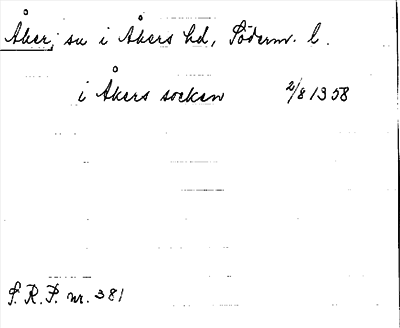 Åker, sn i Åkers hd, Söderm. l.
i Åkers socken 2/8 1358
S. R. P. nr. 381